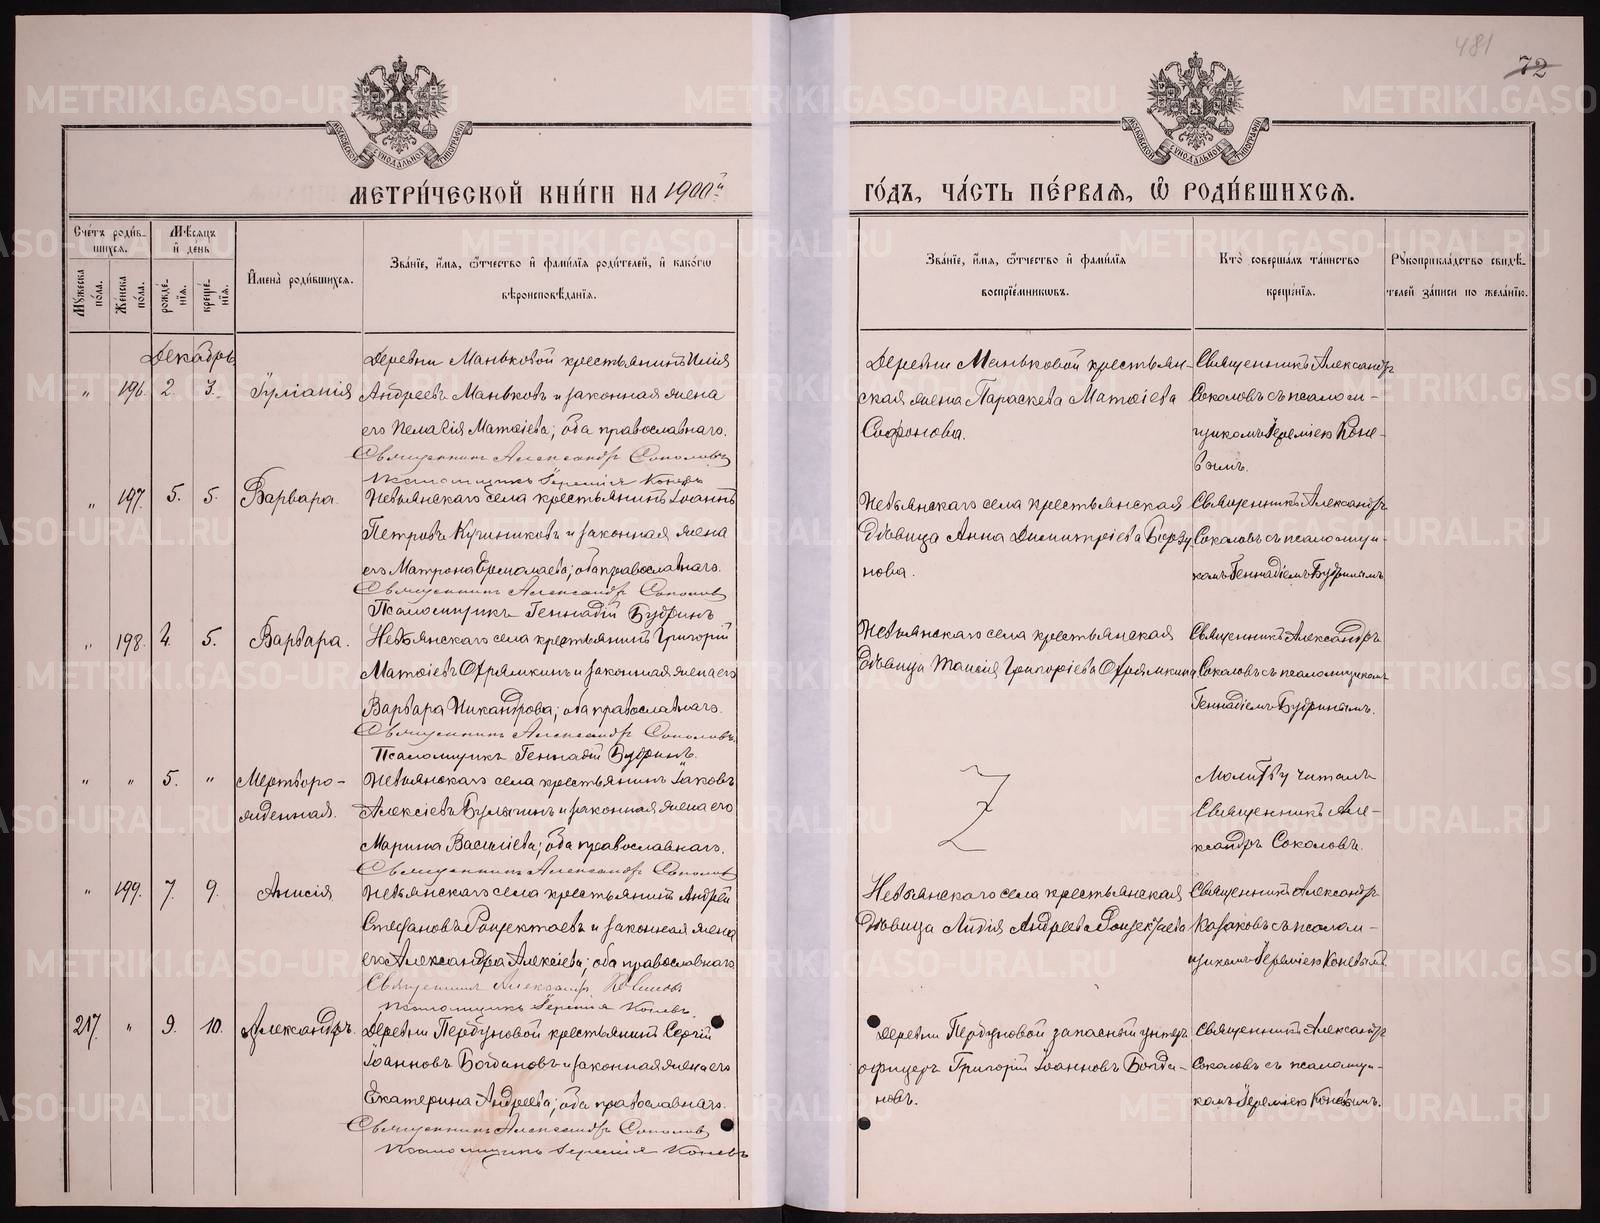 481
72
МЕТРИ́ЧЕСКОЙ КНИ́ГИ НА 1900й
ГО́ДЪ, ЧА́СТЬ ПЕ́РВАѦ, Ѡ РОДИ́ВШИХСѦ.
Сче́тъ роди́в-
шихсѧ.
Мѣ́сяцъ
и҆ де́нь
Мꙋ́жеска по́ла.
Же́нска по́ла.
рожде́-нїѧ.
креще́-нїѧ.
И҆мена̀ роди́вшихсѧ.
Зва́нїе, и҆́мѧ, ѻ҆́тчество и҆ фами́лїѧ роди́телей, и҆ како́гѡ
вѣроисповѣ́данїѧ.
Зва́нїе, и҆́мѧ, ѻ҆́тчество и҆ фами́лїѧ
воспрїе́мникѡвъ.
Кто̀ соверша́лъ та́инство
креще́нїѧ.
Рꙋкоприкла́дство свидѣ́-
телей за́писи по жела́нїю.
Декабрь
" 196. 2. 3. Іуліанія
Деревни Маньковой крестьянинъ Илія
Андреевъ Маньковъ и законная жена
его Пелагія Матѳіева; оба православнаго.
Священникъ Александръ Соколовъ
Псаломщикъ Іеремія Коневъ
Деревни Маньковой крестьян-
ская жена Параскева Матѳіева
Софонова.
Священникъ Александръ
Соколовъ съ псалом-
щикомъ Іереміею Коне-
вымъ.
" 197. 5. 5. Варвара.
Невьянскаго села крестьянинъ Іоаннъ
Петровъ и законная жена
его Матрона Ермолаева; оба православнаго.
Священникъ Александръ Соколовъ
Псаломщикъ Геннадій Будринъ
Невьянскаго села крестьянская
дѣвица Анна Димитріева
нова.
Священникъ Александръ
Соколовъ съ псаломщи-
комъ Геннадіемъ Будринымъ
" 198. 4. 5. Варвара.
Невьянскаго села крестьянинъ Григорій
Матѳіевъ Отрямкинъ и законная жена его
Варвара Никандрова; оба православнаго.
Священникъ Александръ Соколовъ.
Псаломщикъ Геннадій Будринъ.
Невьянскаго села крестьянская
дѣвица Таисія Григоріева Отрямкина
Священникъ Александръ
Соколовъ съ псаломщикомъ
Геннадіемъ Будринымъ.
" " 5. " Мертворо-
жденная.
Невьянскаго села крестьянинъ Іаковъ
Алексіевъ Булыгинъ и законная жена его
Марина Василіева; оба православнаго.
Священникъ Александръ Соколовъ
Молитву читалъ
Священникъ Але-
ксандръ Соколовъ.
" 199. 7. 9. Анисія
Невьянскаго села крестьянинъ Андрей
Стефановъ и законная жена
его Александра Алексіева; оба православнаго.
Священникъ Александръ
Псаломщикъ Іеремія Коневъ.
Невьянскаго села крестьянская
дѣвица Лидія Андреева
Священникъ Александръ
Казаковъ съ псалом-
щикомъ Іереміею Коневымъ
217. " 9. 10. Александръ.
Деревни Первуновой крестьянинъ Сергій
Іоанновъ Богдановъ и законная жена его
Екатерина Андреева; оба православнаго.
Священникъ Александръ Соколовъ
Псаломщикъ Іеремія Коневъ
Деревни Первуновой запасный унтеръ
офицеръ Григорій Іоанновъ Богда-
новъ.
Священникъ Александръ
Соколовъ съ псаломщи-
комъ Іереміею Коневымъ.